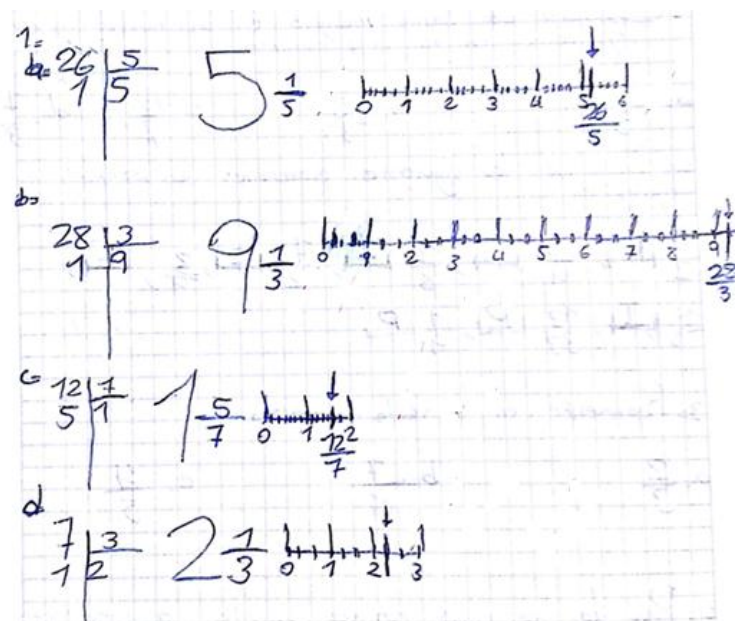 1=
a= 26 | 5
1 | 5
5 1/5
0 1 2 3 4 5 6
26/5
b=
28 | 3
1 | 9
9 1/3
0 1 2 3 4 5 6 7 8 9
28/3
c=
12 | 7
5 | 1
1 5/7
0 1 2
12/7
d
7 | 3
1 | 2
2 1/3
0 1 2 3